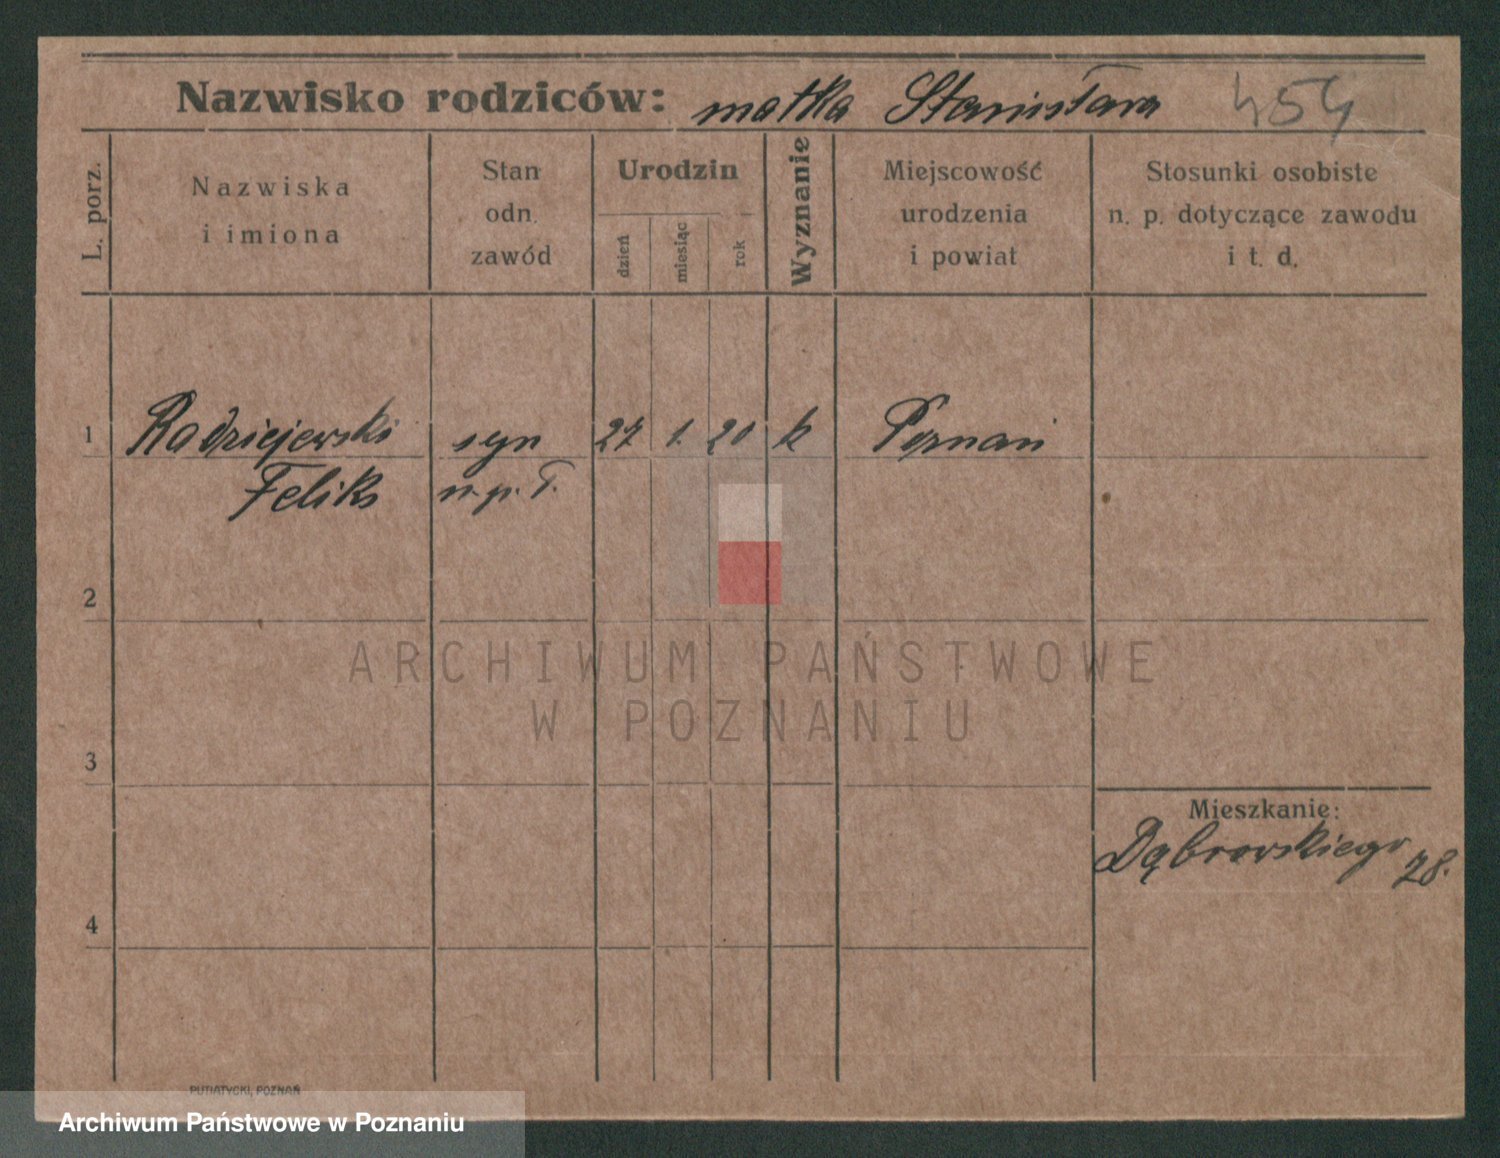 Nazwisko rodziców: matka Stanisława 454
L. porz.
Nazwiska
i imiona
Stan
odn.
zawód
Urodzin
dzień
miesiąc
rok
Wyznanie
Miejscowość
urodzenia
i powiat
Stosunki osobiste
n. p. dotyczące zawodu
i t. d.
1 Radziejewski syn 27 1. 20 k Poznań
Feliks n.p.
2
ARCHIWUM PAŃSTWOWE
W POZNANIU
3
Mieszkanie:
Dąbrowskiego 78.
4
PUTIATYCKI, POZNAŃ
Archiwum Państwowe w Poznaniu